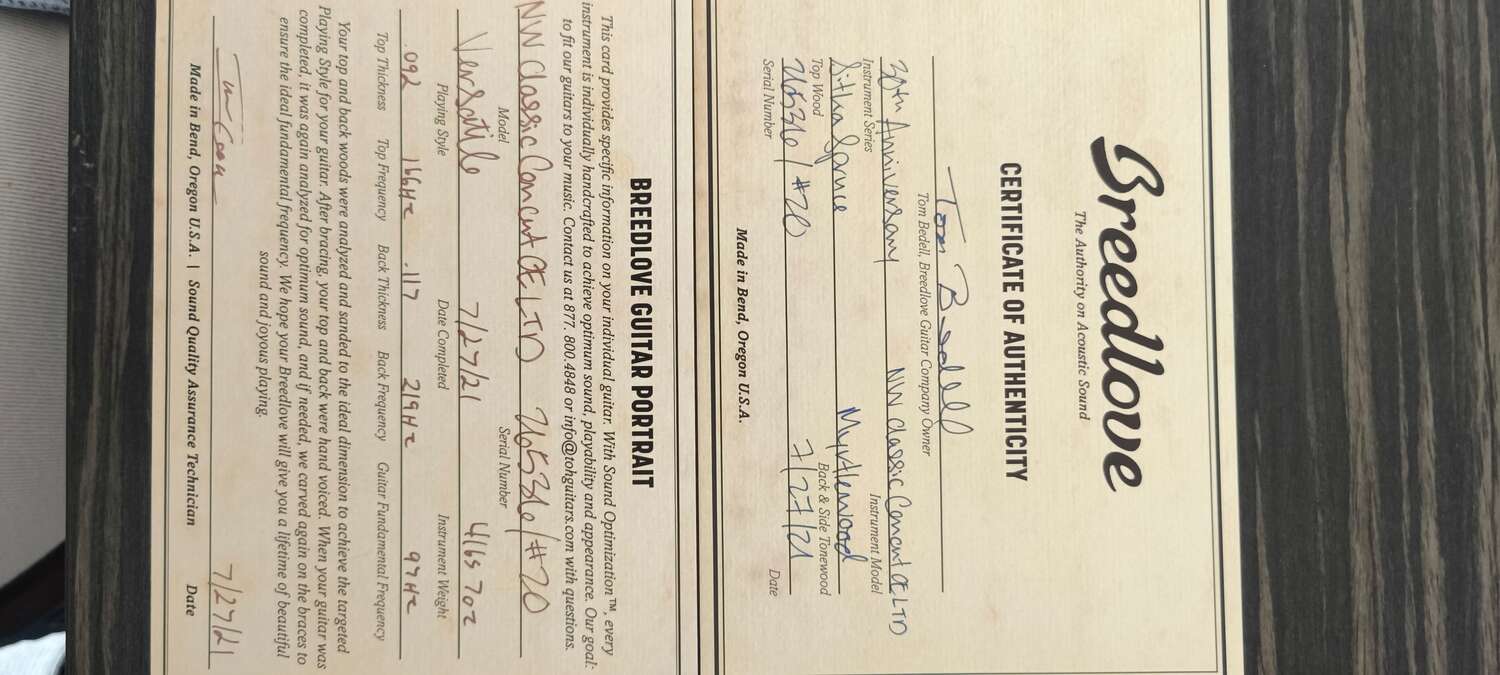 Breedlove
The Authority on Acoustic Sound
CERTIFICATE OF AUTHENTICITY
Tom Bedell
Tom Bedell, Breedlove Guitar Company Owner
30th Anniversary NW Classic Concert CE LTD
Instrument Series Instrument Model
Sitka Spruce Myrtlewood
Top Wood Back & Side Tonewood
26536/#20 7/27/21
Serial Number Date
Made in Bend, Oregon U.S.A.
BREEDLOVE GUITAR PORTRAIT
This card provides specific information on your individual guitar. With Sound Optimization™, every
instrument is individually handcrafted to achieve optimum sound, playability and appearance. Our goal:
to fit our guitars to your music. Contact us at 877. 800.4848 or info@tohguitars.com with questions.
NW Classic Concert CE LTD 26536/#20
Model Serial Number
Versatile 7/27/21 4lbs 7oz
Playing Style Date Completed Instrument Weight
.092 166Hz .117 219Hz 99Hz
Top Thickness Top Frequency Back Thickness Back Frequency Guitar Fundamental Frequency
Your top and back woods were analyzed and sanded to the ideal dimension to achieve the targeted
Playing Style for your guitar. After bracing, your top and back were hand voiced. When your guitar was
completed, it was again analyzed for optimum sound, and if needed, we carved again on the braces to
ensure the ideal fundamental frequency. We hope your Breedlove will give you a lifetime of beautiful
sound and joyous playing.
7/27/21
Made in Bend, Oregon U.S.A. | Sound Quality Assurance Technician Date